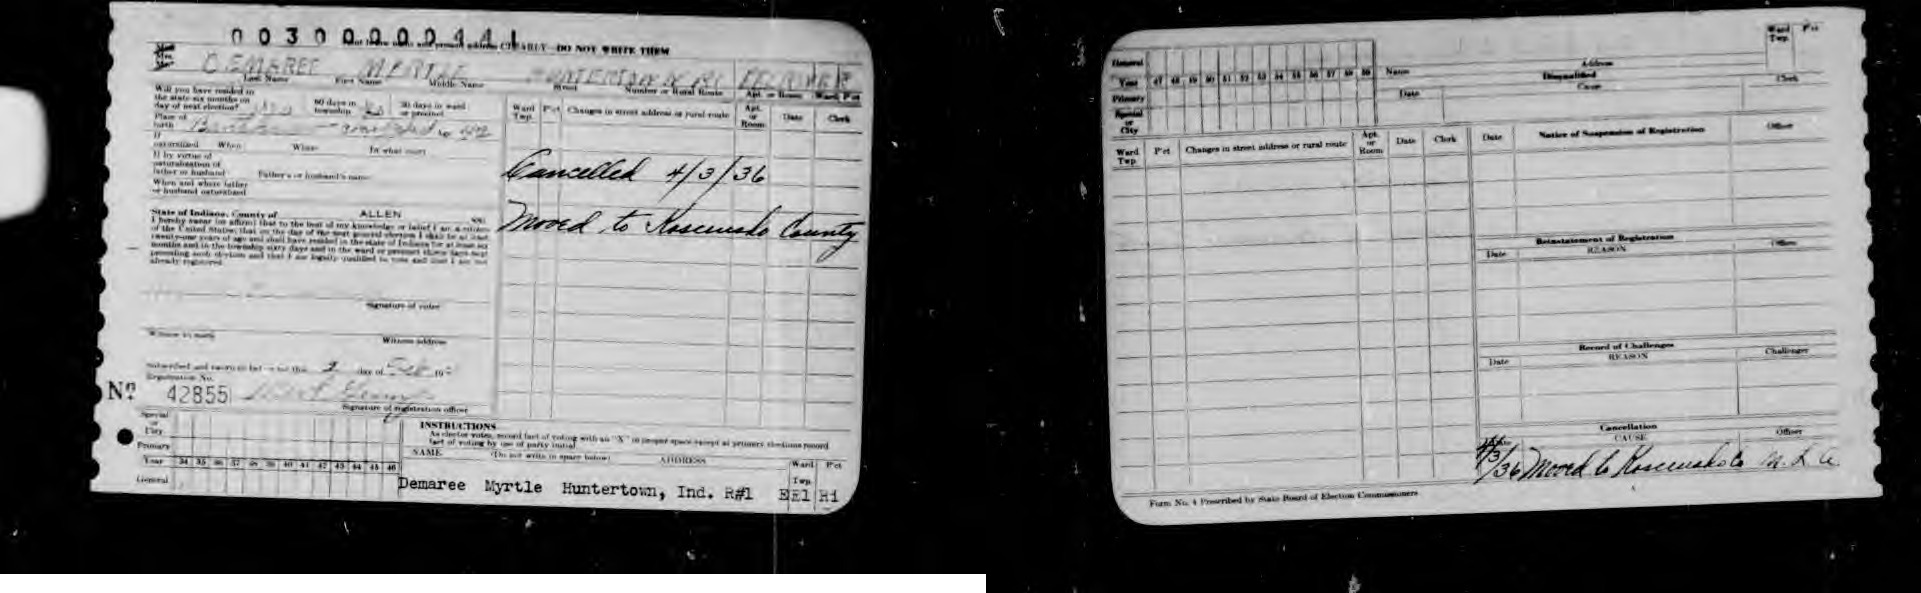 00300000441
Print below name and present address CLEARLY—DO NOT WRITE THEM
DEMAREE MYRTLE HUNTERTOWN R1
Last Name First Name Middle Name Street Number or Rural Route Apt. or Room Ward P'ct
Will you have resided in
the state six months on
day of next election? Yes 60 days in
township Yes 30 days in ward
or precinct
Place of
birth
If
naturalized When Where In what court
If by virtue of
naturalization of
father or husband Father's or husband's name
When and where father
or husband naturalized
State of Indiana, County of ALLEN SS:
I hereby swear (or affirm) that to the best of my knowledge or belief I am a citizen
of the United States; that on the day of the next general election I shall be at least
twenty-one years of age and shall have resided in the state of Indiana for at least six
months and in the township sixty days and in the ward or precinct thirty days next
preceding such election and that I am legally qualified to vote and that I am not
already registered.
Signature of voter
Witness to mark Witness address
Subscribed and sworn to before me this 2 day of Feb 19
Registration No.
Nº 42855
Signature of registration officer
Ward
Twp. P'ct Changes in street address or rural route Apt.
or
Room Date Clerk
Cancelled 4/3/36
Moved to Kosciusko County
Special
or
City
Primary
Year 34 35 36 37 38 39 40 41 42 43 44 45 46
General
INSTRUCTIONS
As elector votes, record fact of voting with an "X" in proper space except at primary elections record
fact of voting by use of party initial.
NAME (Do not write in space below) ADDRESS Ward
Twp. P'ct
Demaree Myrtle Huntertown, Ind. R#1 EE1 R1
General
Year 47 48 49 50 51 52 53 54 55 56 57 58 59
Primary
Special
or
City
Name Address Ward
Twp. P'ct
Disqualified
Date Cause Clerk
Ward
Twp. P'ct Changes in street address or rural route Apt.
or
Room Date Clerk
Date Notice of Suspension of Registration Officer
Reinstatement of Registration
Date REASON Officer
Record of Challenges
Date REASON Challenger
Cancellation
Date CAUSE Officer
4/3/36 Moved to Kosciusko Co M. L. A.
Form No. 4 Prescribed by State Board of Election Commissioners